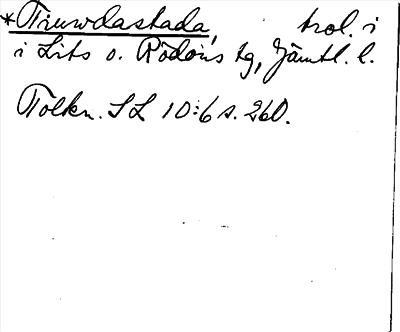 *Tiuwdastada, trol. i
i Lits o. Rödöns tg, Jämtl. l.
Tolkn. SL 10:6 s. 260.